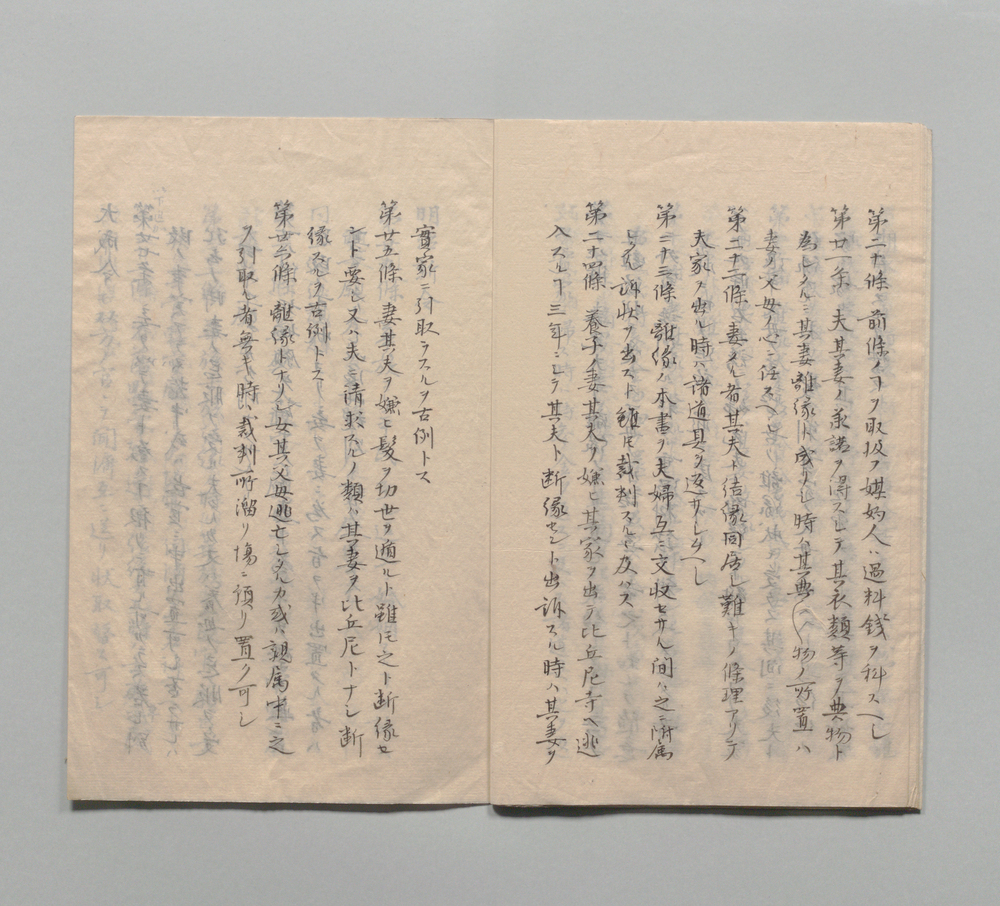 第二十條 前條ノヿヲ取扱フ媒妁人ハ過料銭ヲ科スヘシ
第廿一条 夫其妻ノ承諾ヲ得スシテ其衣類等ヲ典物ト
為シタルニ其妻離縁ト成リシ時ハ其典(ヘ)物ノ所置ハ
妻ノ父母ノ心ニ任スヘシ
第二十二條 妻タル者其夫ト結縁同居シ難キノ條理アリテ
夫家ヲ出ル時ハ諸道具ヲ返サシムヘシ
第二十三條 離縁ノ本書ヲ夫婦互ニ交収セサル間ハ之ニ附属
シタル訴状ヲ出スト雖ㇺ裁判スルニ及ハス
第二十四條 養子ノ妻其夫ヲ嫌ヒ其家ヲ出テ比丘尼寺ヘ逃
入スルヿ三年ニシテ其夫ト断縁セント出訴スル時ハ其妻ヲ
實家ニ引取ラスルヲ古例トス
第廿五條 妻其夫ヲ嫌ヒ髪ヲ切世ヲ遁ルト雖ㇺ之ト断縁セ
ント要シ又ハ夫ニ請求スルノ類ハ其妻ヲ比丘尼トナシ断
縁スルヲ古例トス
第廿六條 離縁トナリシ女其父母逃亡シタルカ或ハ親属中ニ之
ヲ引取ル者無キ時ハ裁判所溜リ場ニ預リ置ク可シ